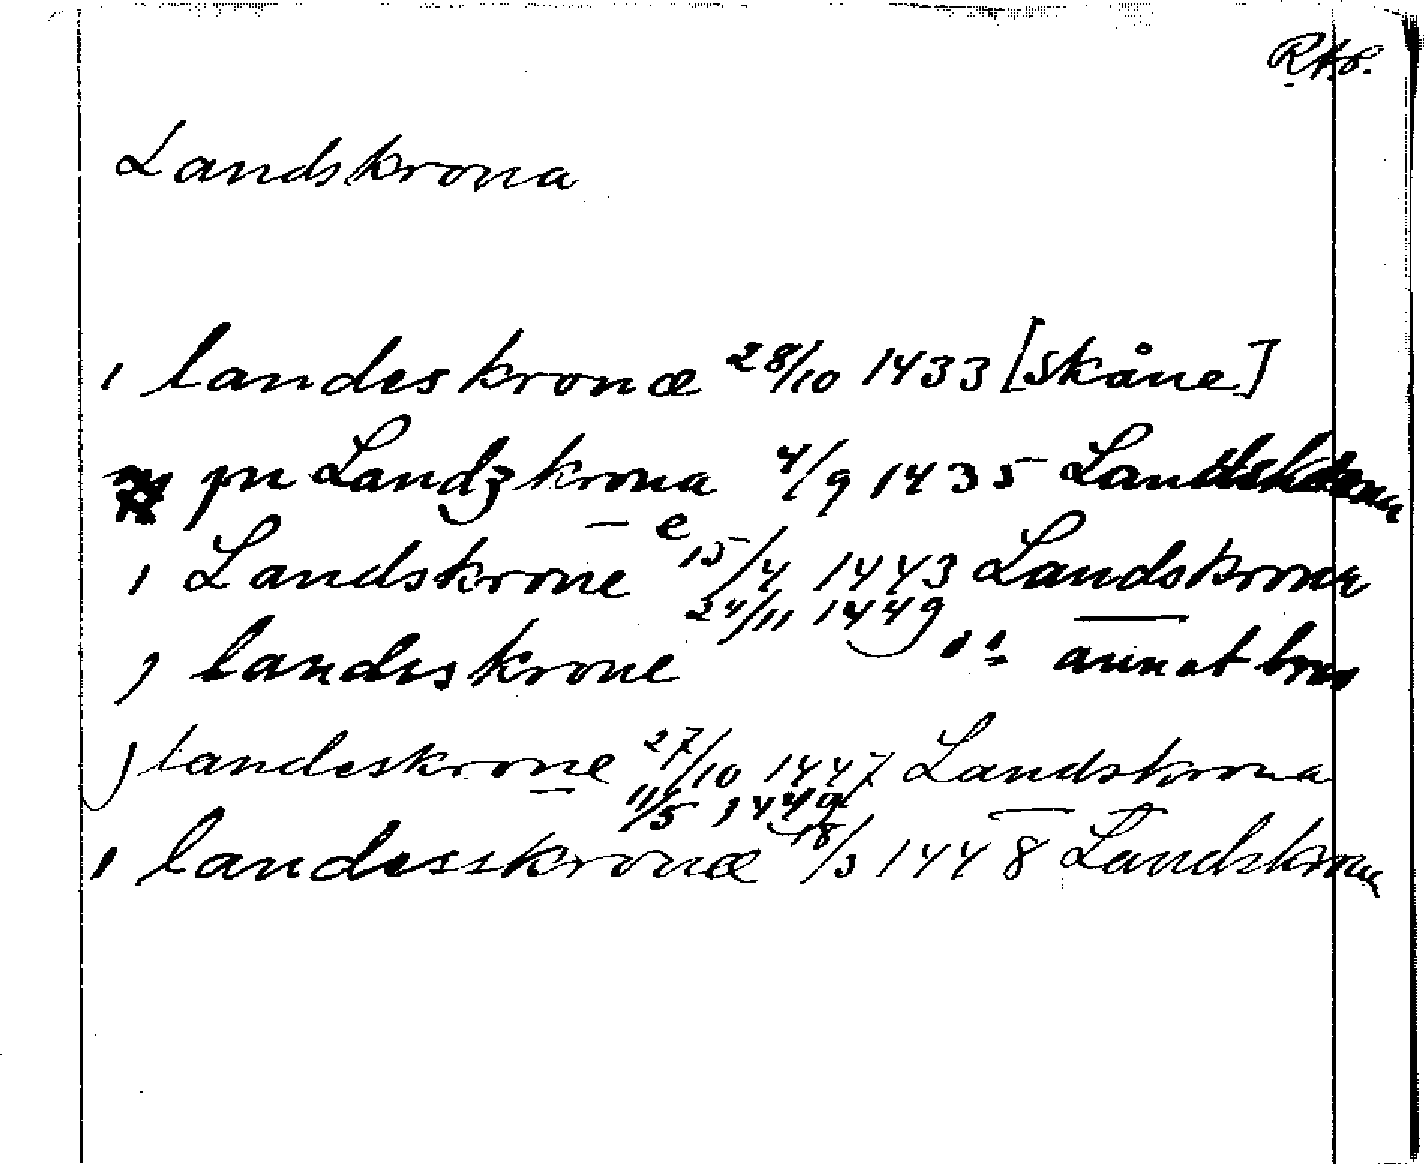 RAp.
Landskrona
i landeskronæ 28/10 1433 [Skåne]
pn Landzkrona 4/9 1435 Landskrona
— e
i Landskrone 15/4 1443 Landskrona
24/11 1449
j landeskrone annat brev
j landeskrone 27/10 1447 Landskrona
11/5 1449
i landesskronæ 18/3 1448 Landskrona